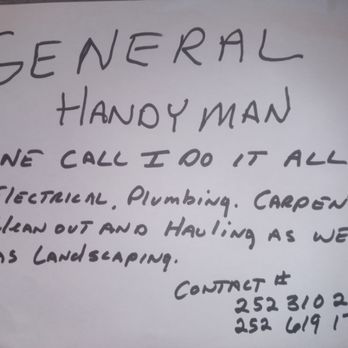 GENERAL
HANDYMAN
ONE CALL I DO IT ALL
ELECTRICAL, Plumbing. CARPEN
CLEAN OUT AND HAuling AS WE
AS LANdSCAPING.
CONTACT #
252 310 2
252 619 17